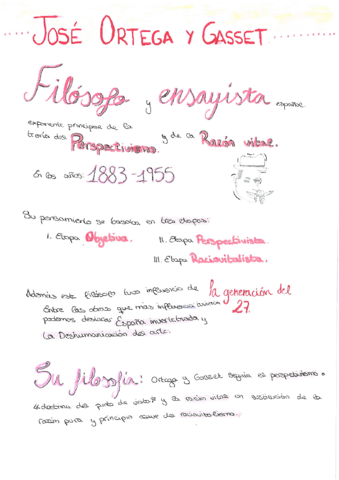 JOSÉ ORTEGA Y GASSET
Filósofo y ensayista español
exponente principal de la
teoría del Perspectivismo y de la Razón vital.
En los años 1883-1955
Su pensamiento se basaba en tres etapas:
I. Etapa Objetiva. II. Etapa Perspectivista
III. Etapa Raciovitalista.
Además este filósofo tuvo influencia de la generación del 27.
Entre las obras que más influencia
podemos destacar España invertebrada y
La Deshumanización del arte.
Su filosofía: Ortega y Gasset seguía el perspectivismo =
"doctrina del punto de vista" y la razón vital en sustitución de la
razón pura y principio clave del raciovitalismo.